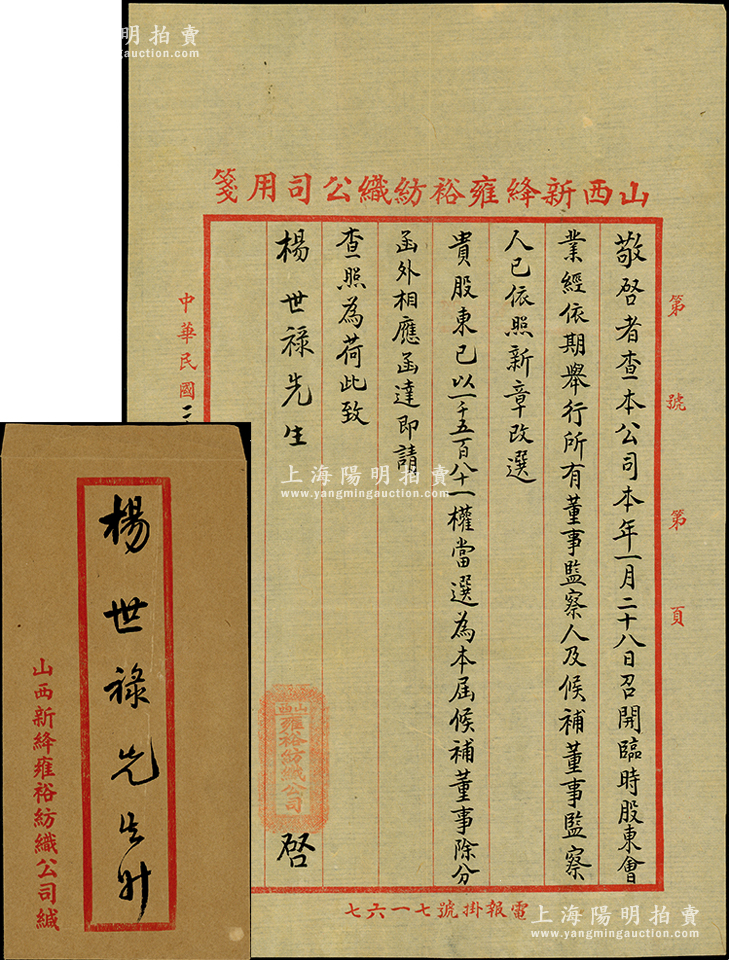 山西新絳雍裕紡織公司用箋
第 號 第 頁
敬啓者查本公司本年一月二十八日召開臨時股東會
業經依期舉行所有董事監察人及候補董事監察
人已依照新章改選
貴股東已以一千五百八十一權當選為本屆候補董事除分
函外相應函達即請
查照為荷此致
楊世祿先生
啓
山西
雍裕紡織公司
中華民國三
電報掛號七一六七
楊世祿先生
山西新絳雍裕紡織公司緘
上海陽明拍賣
www.yangmingauction.com
上海陽明拍賣
www.yangmingauction.com
明拍賣
auction.com